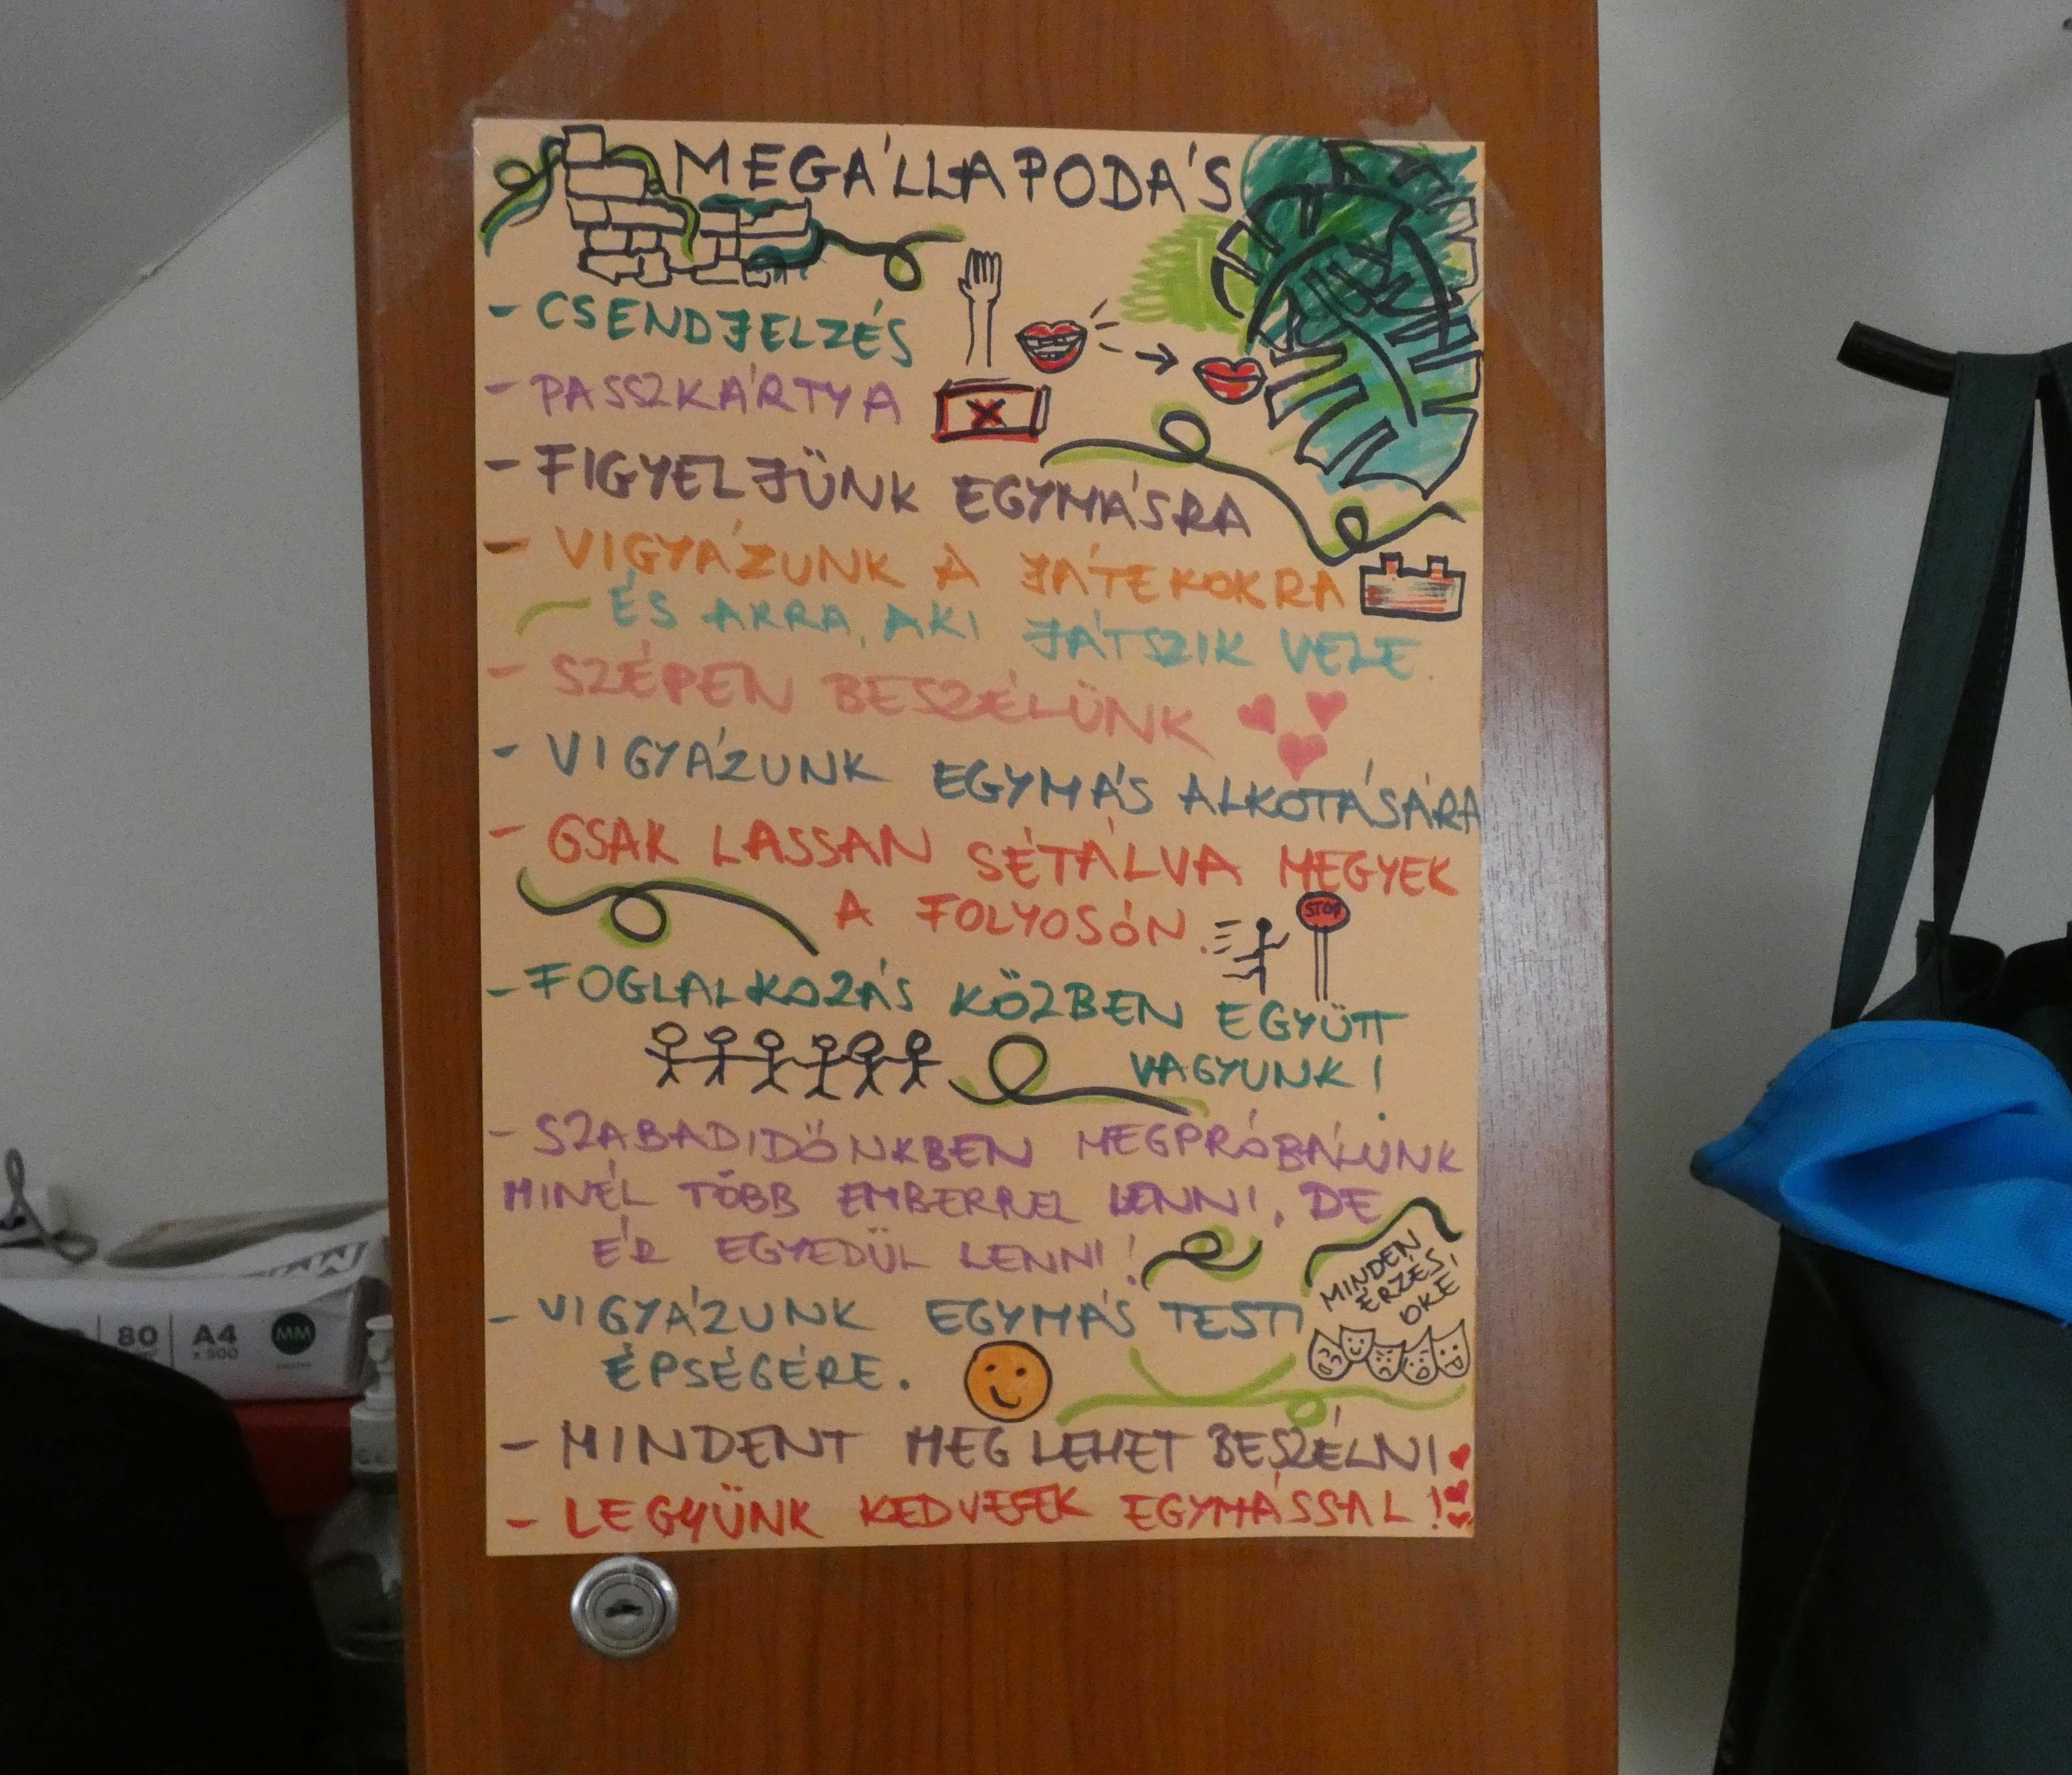 MEGÁLLAPODÁS
- CSENDJELZÉS
- PASSZKÁRTYA
- FIGYELJÜNK EGYMÁSRA
- VIGYÁZUNK A JÁTÉKOKRA
ÉS ARRA, AKI JÁTSZIK VELE.
- SZÉPEN BESZÉLÜNK
- VIGYÁZUNK EGYMÁS ALKOTÁSÁRA
- CSAK LASSAN SÉTÁLVA MEGYEK
A FOLYOSÓN.
STOP
- FOGLALKOZÁS KÖZBEN EGYÜTT
VAGYUNK!
- SZABADIDŐNKBEN MEGPRÓBÁLUNK
MINÉL TÖBB EMBERREL LENNI, DE
ÉR EGYEDÜL LENNI!
MINDEN
ÉRZÉS
OKÉ!
- VIGYÁZUNK EGYMÁS TESTI
ÉPSÉGÉRE.
- MINDENT MEG LEHET BESZÉLNI
- LEGYÜNK KEDVESEK EGYMÁSSAL!
80
A4
x 500
MM